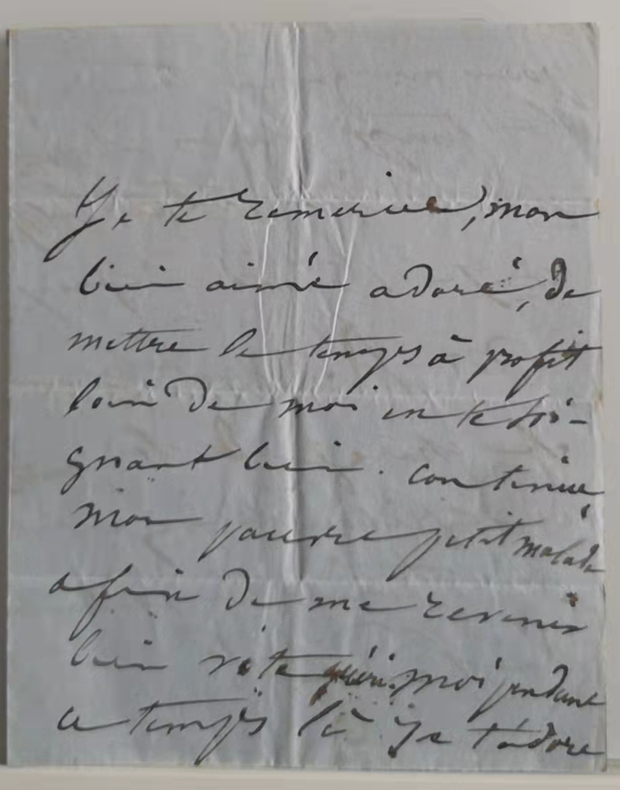 Je te remercie, mon
bien aimé adoré, de
mettre le temps à profit
loin de moi en te soi-
gnant bien. continue,
mon pauvre petit malade
afin de me revenir
bien vite guéri. moi pendant
ce temps là je t'adore